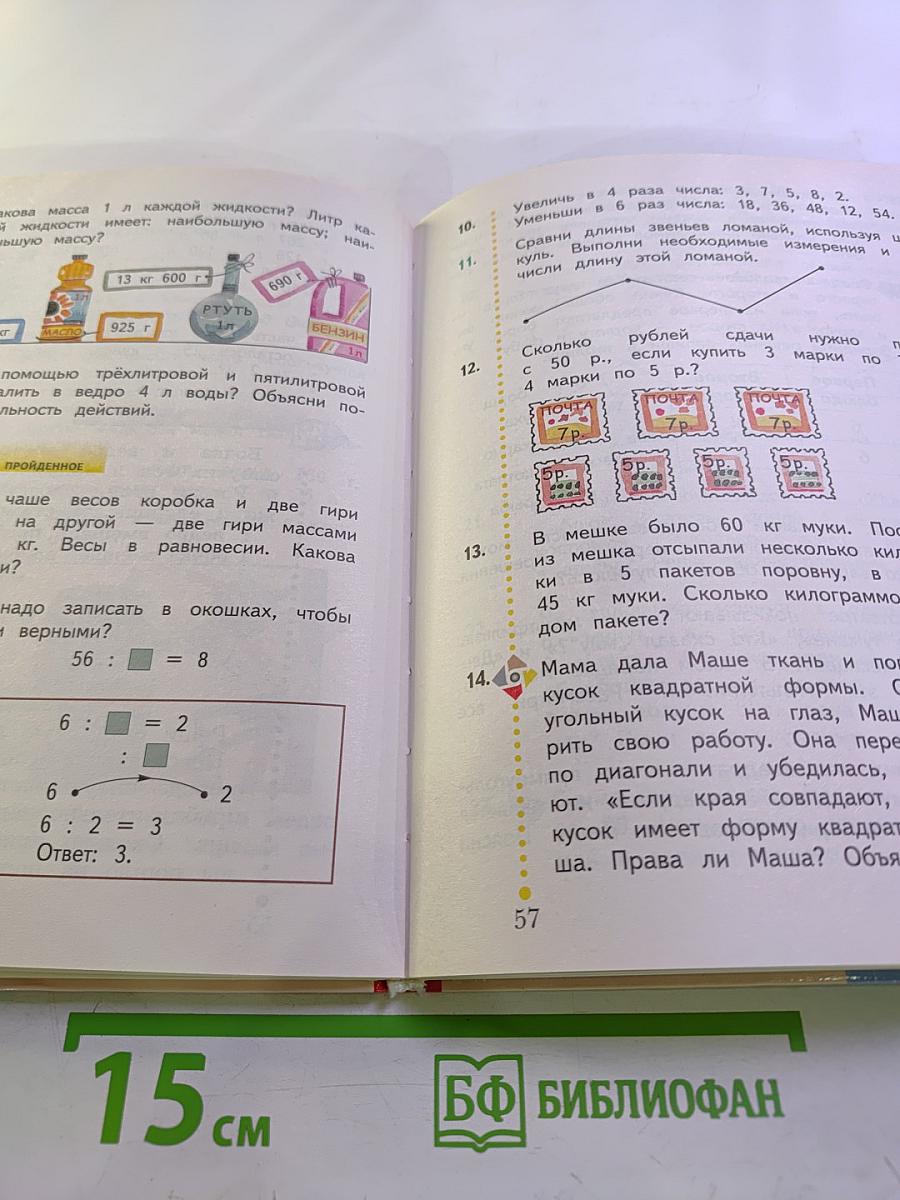 масса 1 л каждой жидкости? Литр ка-
жидкости имеет: наибольшую массу; наи-
массу?
кг
МАСЛО
1 л
13 кг 600 г
925 г
РТУТЬ
1л
690 г
БЕНЗИН
1 л
помощью трёхлитровой и пятилитровой
в ведро 4 л воды? Объясни по-
действий.
ПРОЙДЕННОЕ
чаше весов коробка и две гири
на другой — две гири массами
кг. Весы в равновесии. Какова
надо записать в окошках, чтобы
верными?
56 : = 8
6 : = 2
:
6 2
6 : 2 = 3
Ответ: 3.
10. Увеличь в 4 раза числа: 3, 7, 5, 8, 2.
Уменьши в 6 раз числа: 18, 36, 48, 12, 54.
11. Сравни длины звеньев ломаной, используя
куль. Выполни необходимые измерения и
числи длину этой ломаной.
12. Сколько рублей сдачи нужно
с 50 р., если купить 3 марки по
4 марки по 5 р.?
ПОЧТА 7р.
ПОЧТА 7р.
ПОЧТА 7р.
5р. 5р. 5р. 5р.
13. В мешке было 60 кг муки.
из мешка отсыпали несколько
ки в 5 пакетов поровну, в
45 кг муки. Сколько
дом пакете?
14. Мама дала Маше ткань и
кусок квадратной формы.
угольный кусок на глаз,
рить свою работу. Она
по диагонали и убедилась,
ют. «Если края совпадают,
кусок имеет форму
ша. Права ли Маша?
57
15 см
БФ БИБЛИОФАН